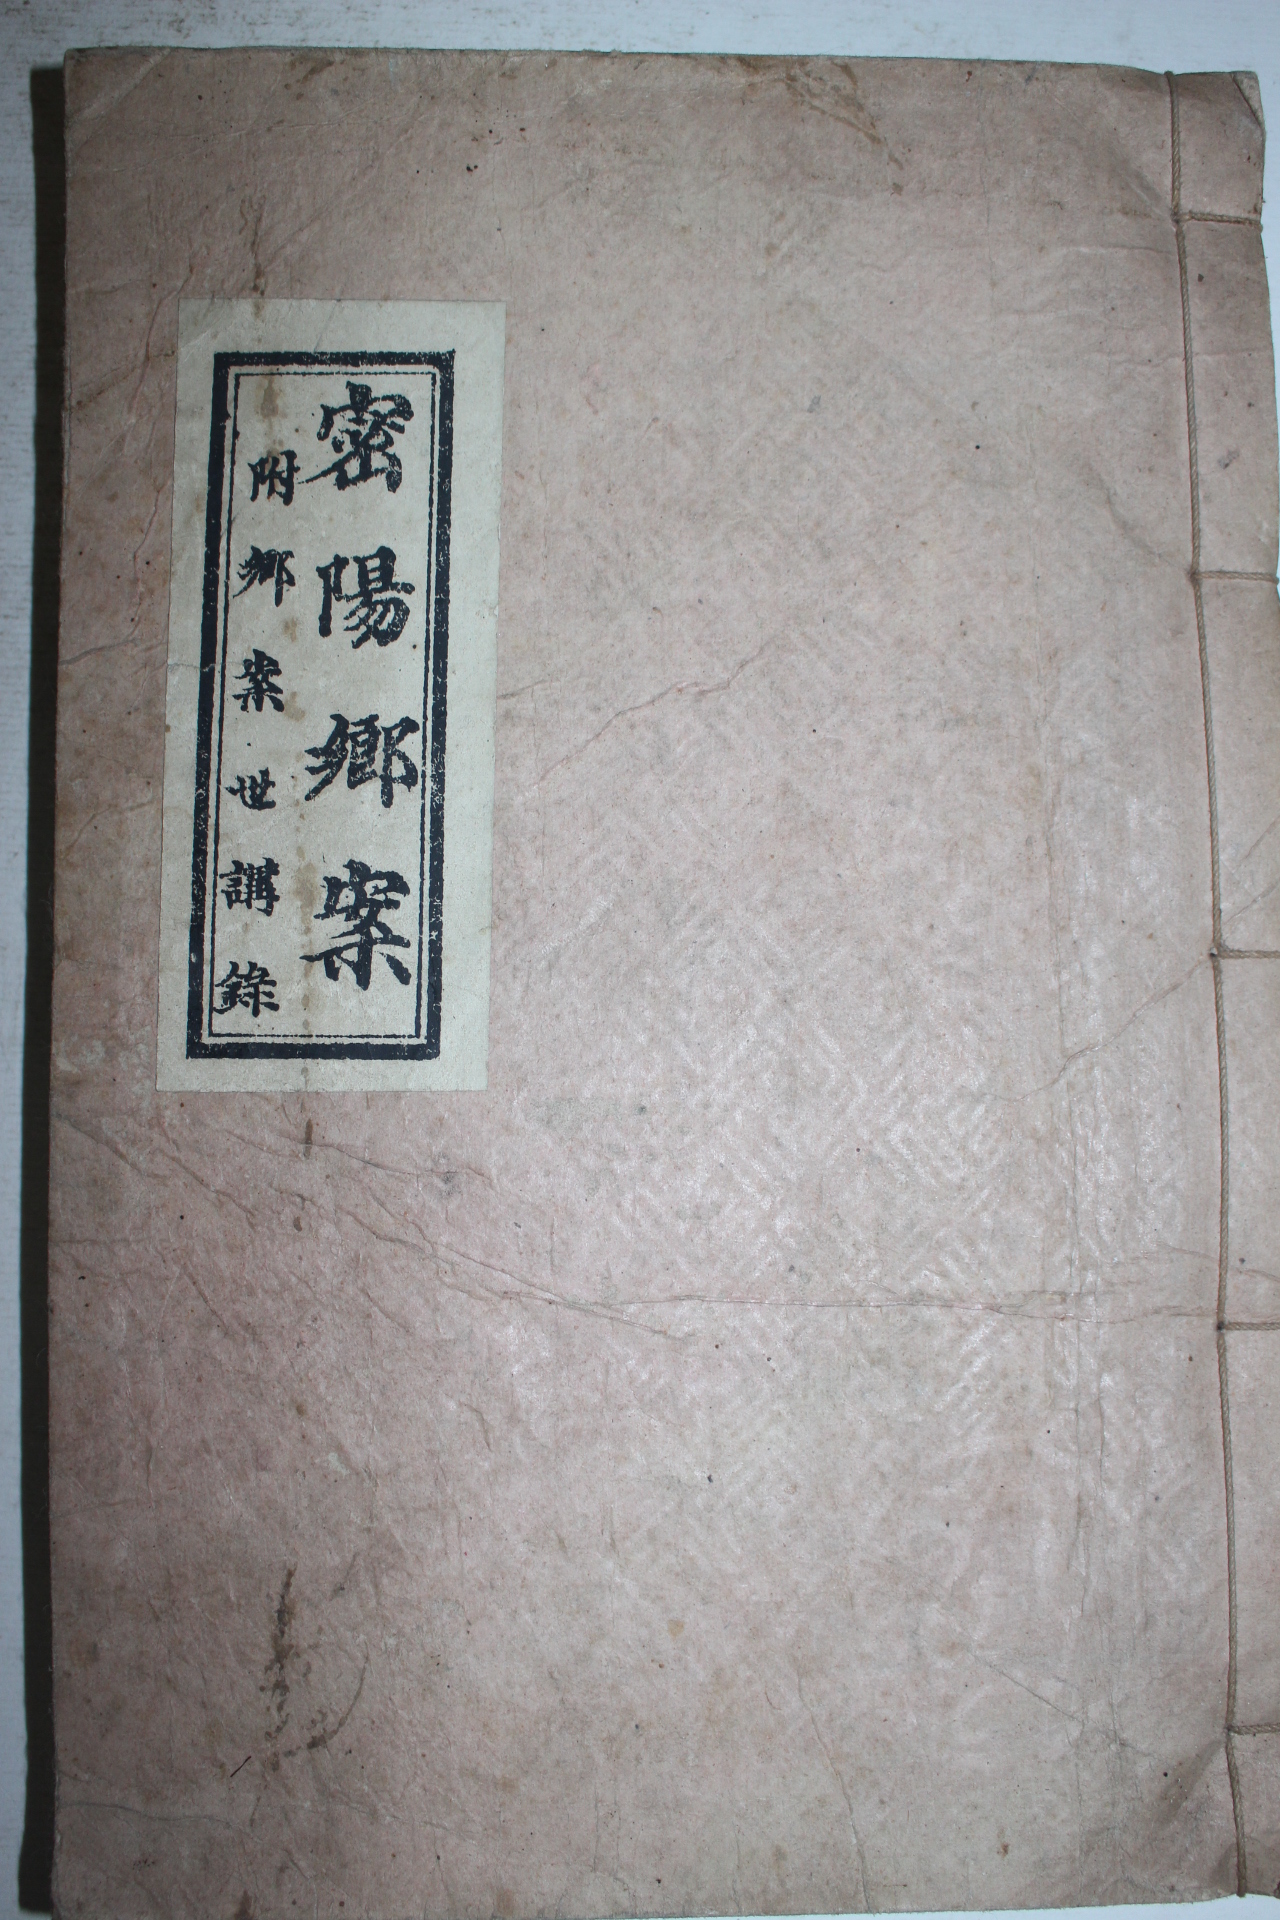 密陽鄉案
附鄉案世講錄